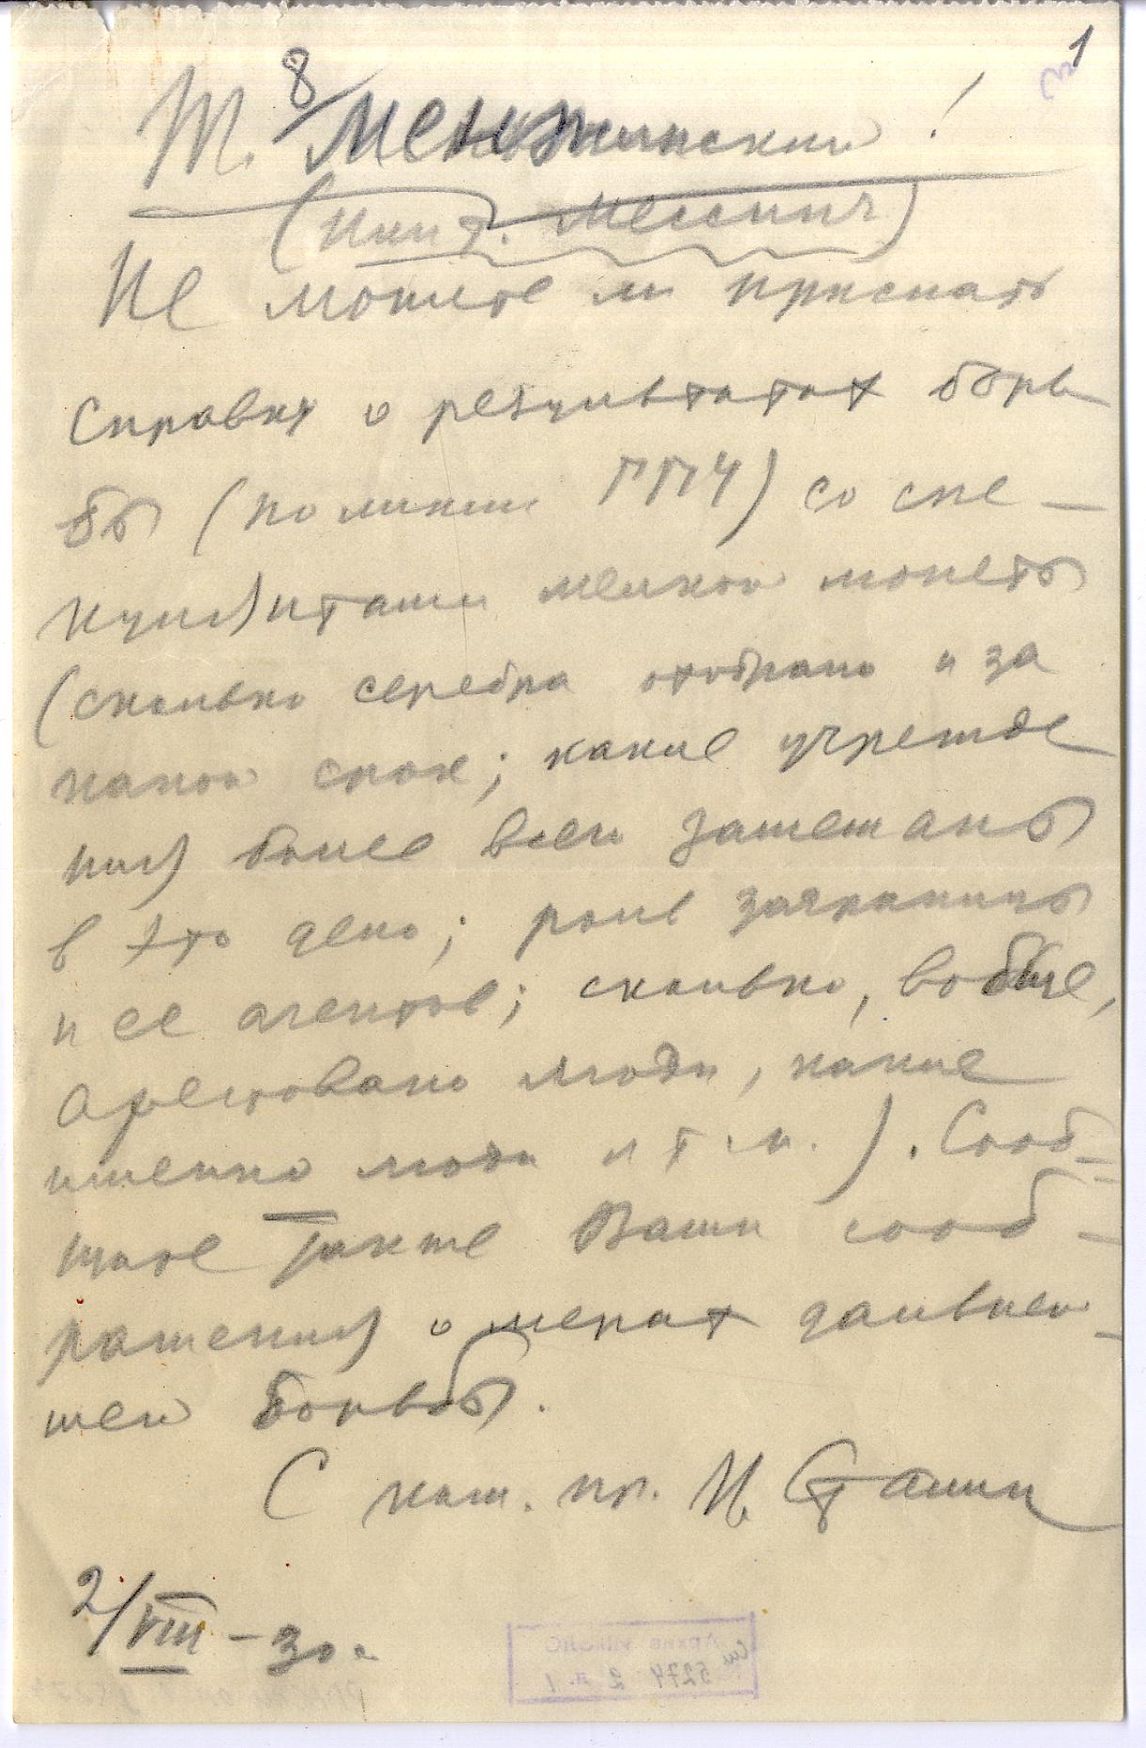 1
8
Т. Менжинский!
(Или т. Мессинг)
Не можете ли прислать
справку о результатах борь
бы (по линии ГПУ) со спе-
кулянтами мелкой монеты
(сколько серебра отобрано и за
какой срок; какие учрежде
ния более всего замешаны
в это дело; роль заграницы
и ее агентов; сколько, вобще,
арестовано людей, какие
именно люди и т.п.). Сооб-
щите также Ваши сооб-
ражения о мерах дальней-
шей борьбы.
С ком. пр. И. Сталин
2/VIII-30.
5274 2 л. 1